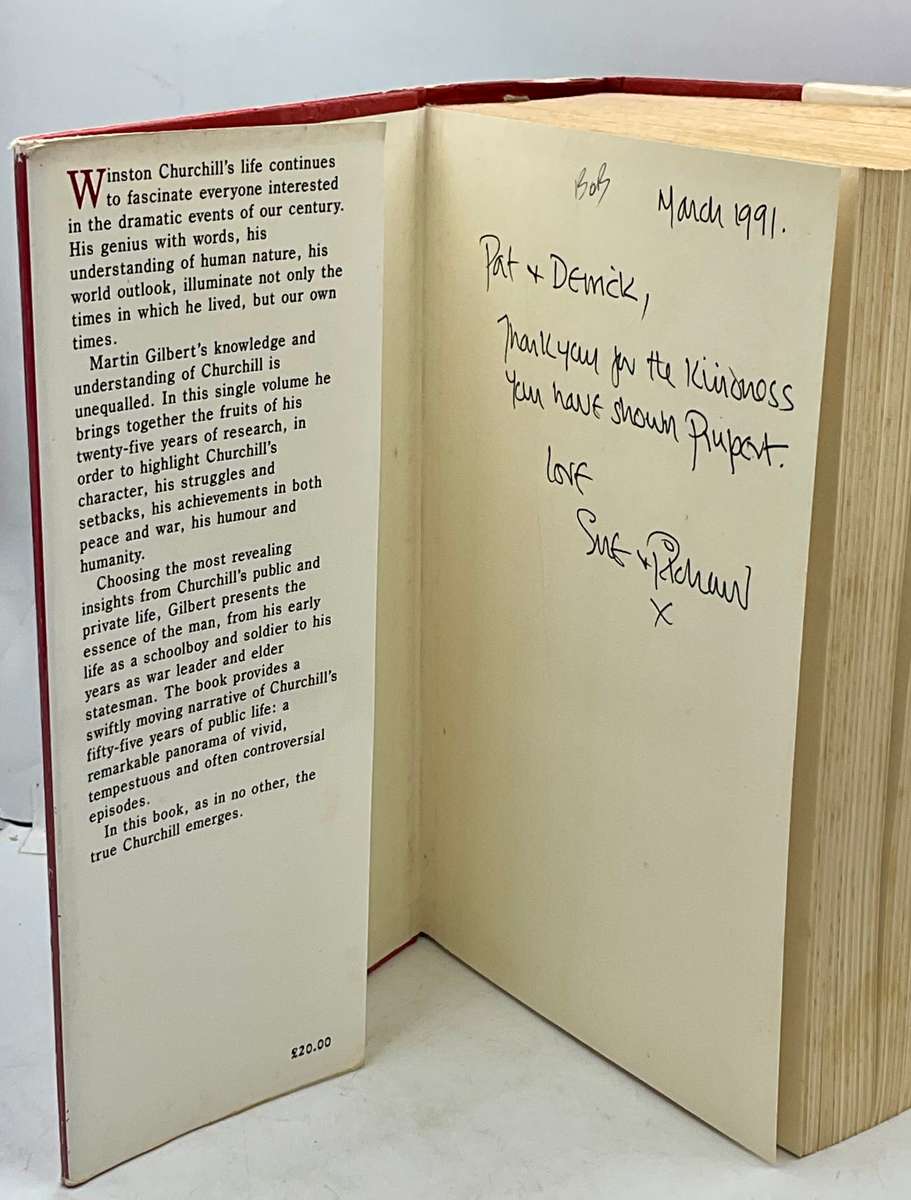 Winston Churchill's life continues
to fascinate everyone interested
in the dramatic events of our century.
His genius with words, his
understanding of human nature, his
world outlook, illuminate not only the
times in which he lived, but our own
times.
Martin Gilbert's knowledge and
understanding of Churchill is
unequalled. In this single volume he
brings together the fruits of his
twenty-five years of research, in
order to highlight Churchill's
character, his struggles and
setbacks, his achievements in both
peace and war, his humour and
humanity.
Choosing the most revealing
insights from Churchill's public and
private life, Gilbert presents the
essence of the man, from his early
life as a schoolboy and soldier to his
years as war leader and elder
statesman. The book provides a
swiftly moving narrative of Churchill's
fifty-five years of public life: a
remarkable panorama of vivid,
tempestuous and often controversial
episodes.
In this book, as in no other, the
true Churchill emerges.
£20.00
BOB
March 1991.
Pat + Derrick,
Thank you for the Kindness
you have shown Rupert.
Love
Sue + Richard
X